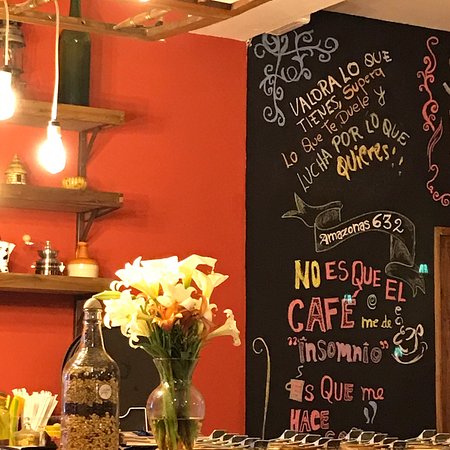 VALORA LO QUE
TIENES, Supera
Lo Que Te Duele y
LUCHA POR LO QUE
QUIERES!!
Amazonas 632
NO ES QUE EL
CAFÉ me dé
"insomnio"
ES QUE me
HACE